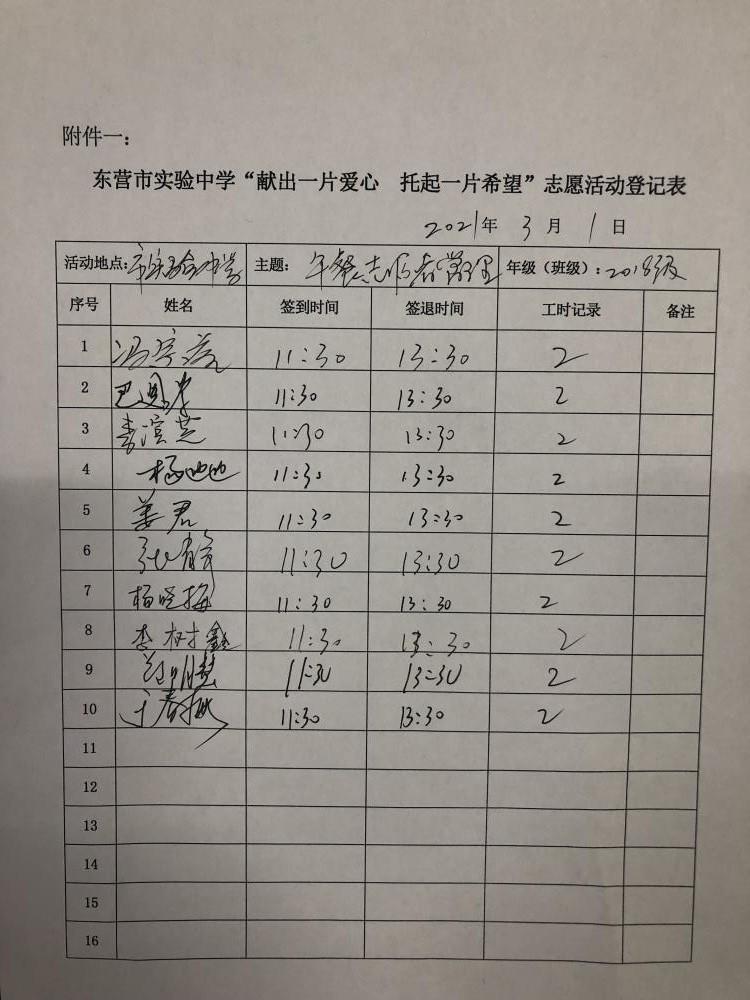 附件一：
东营市实验中学“献出一片爱心 托起一片希望”志愿活动登记表
2021年 3 月 1 日
活动地点：市实验中学 主题：午餐志愿者管理 年级（班级）：2018级
序号 姓名 签到时间 签退时间 工时记录 备注
1 11:30 13:30 2
2 11:30 13:30 2
3 李 芝 11:30 13:30 2
4 杨 11:30 13:30 2
5 姜君 11:30 13:30 2
6 11:30 13:30 2
7 杨晓梅 11:30 13:30 2
8 李树鑫 11:30 13:30 2
9 11:30 13:30 2
10 11:30 13:30 2
11
12
13
14
15
16